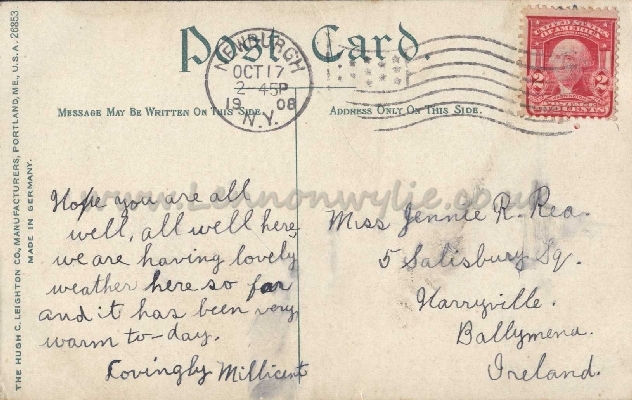 Post Card.
NEWBURGH
OCT 17
2-45P
19 08
N.Y.
UNITED STATES
OF AMERICA
2 2
POSTAGE
TWO CENTS
MESSAGE MAY BE WRITTEN ON THIS SIDE.
ADDRESS ONLY ON THIS SIDE.
www.Lennonwylie.co.uk
Hope you are all
well, all well here,
we are having lovely
weather here so far
and it has been very
warm to-day.
Lovingly Millicent
Miss Jennie R. Rea.
5 Salisbury Sq.
Harryville.
Ballymena.
Ireland.
THE HUGH C. LEIGHTON CO., MANUFACTURERS, PORTLAND, ME., U.S.A. 26853
MADE IN GERMANY.